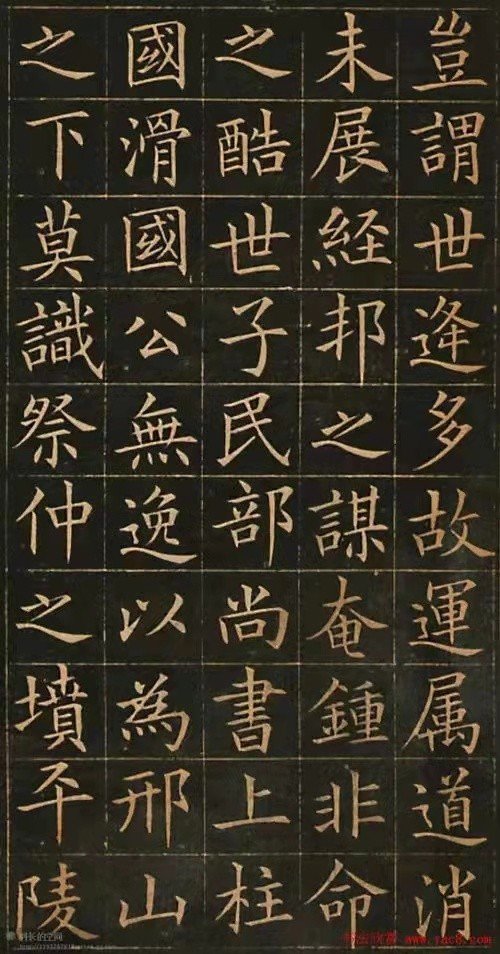 豈謂世逄多故運属道消
未展經邦之謀奄鍾非命
之酷世子民部尚書上柱
國滑國公無逸以為邢山
之下莫識祭仲之墳平陵
书法欣赏 www.yac8.com